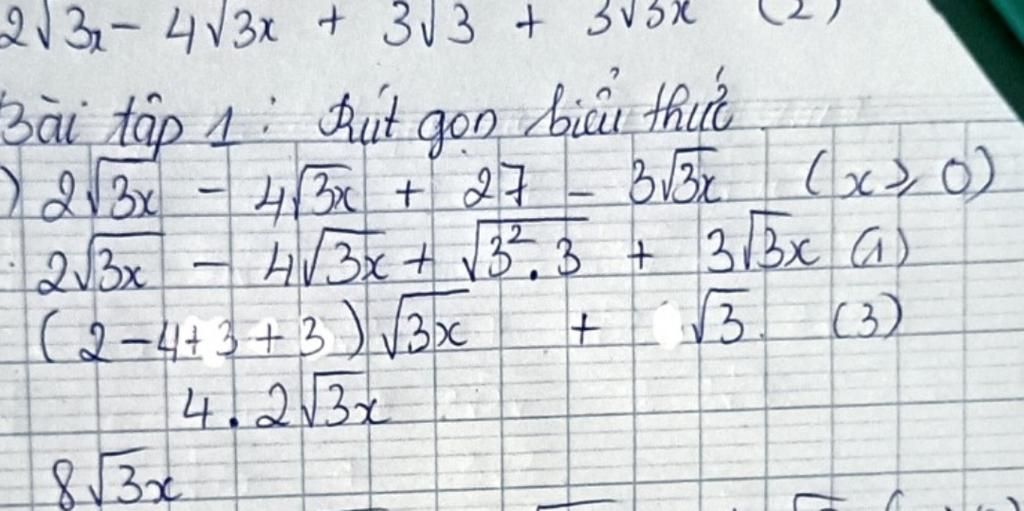 2√3x - 4√3x + 3√3 + 3√3x (2)
Bài tập 1: Rút gọn biểu thức
) 2√3x - 4√3x + 27 - 3√3x (x ≥ 0)
2√3x - 4√3x + √3².3 + 3√3x (1)
(2-4+3+3)√3x + √3. (3)
4.2√3x
8√3x